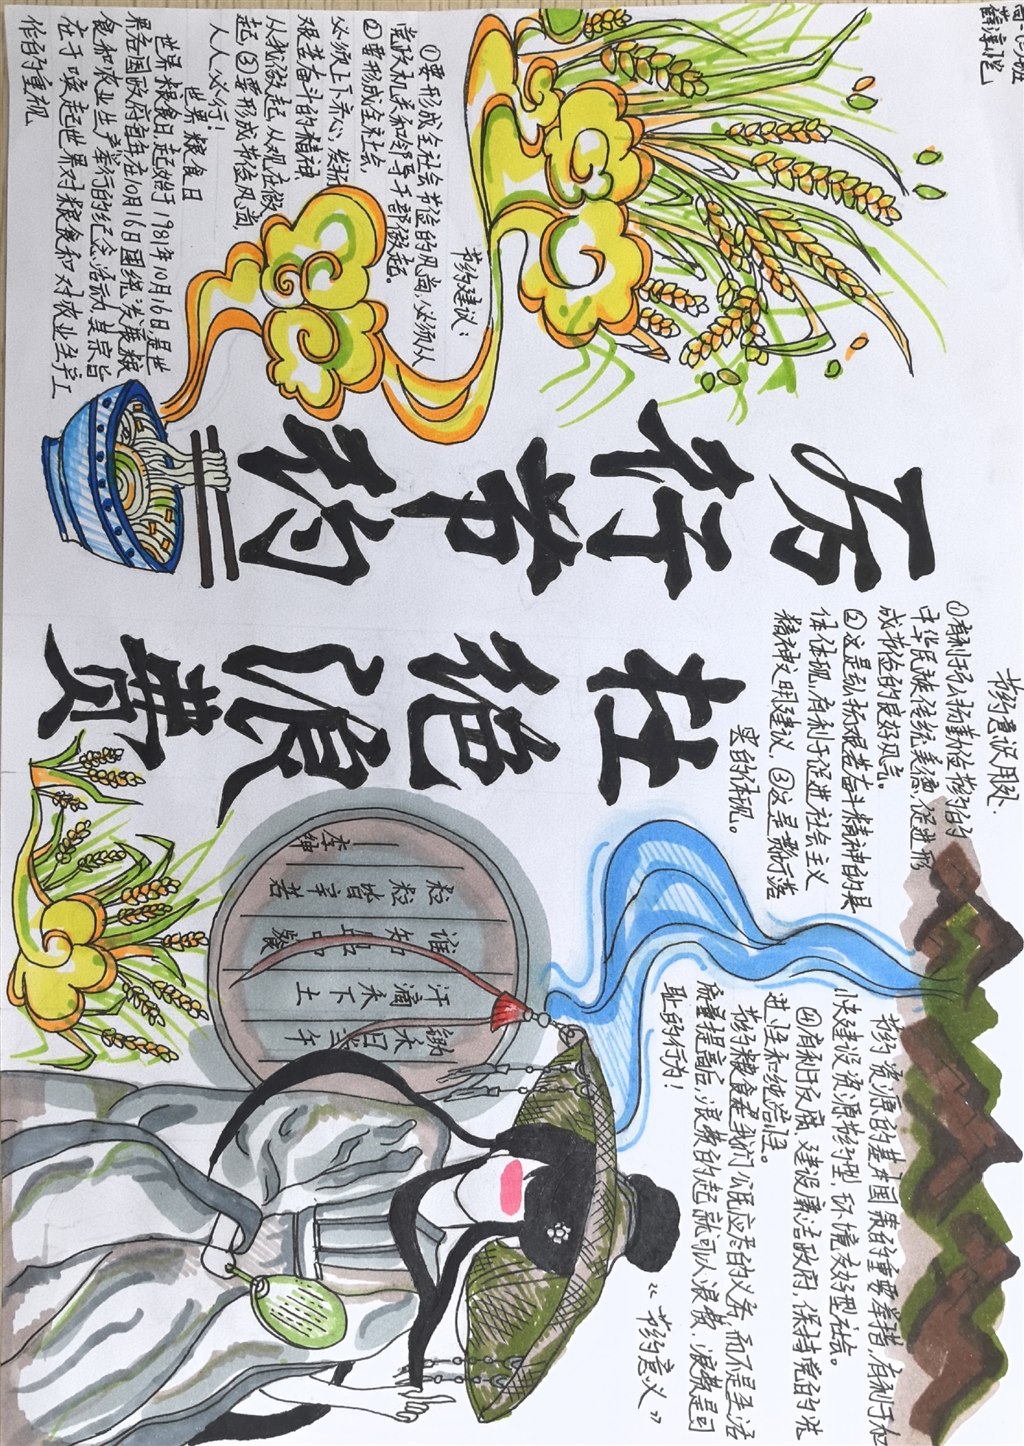 厉行节约
杜绝浪费
节约建议：
①要形成全社会节俭的风尚，必须从
党政机关和领导干部做起。
②要形成全社会
必须上下齐心，发扬
艰苦奋斗的精神，
从我做起，从现在做
起。③要形成节俭风尚，
人人必行！
世界粮食日
世界粮食日起始于1981年10月16日，是世
界各国政府每年在10月16日围绕发展粮
食和农业生产举行的纪念活动，其宗旨
在于唤起世界对粮食和对农业生产工
作的重视。
节约意识用处
①有利于弘扬勤俭节约的
中华民族传统美德，促进形
成节俭的良好风气。
②这是弘扬艰苦奋斗精神的具
体体现，有利于促进社会主义
精神文明建设，③这是勤俭节
实的体现。
节约资源的基本国策的重要举措，有利于加
快建设资源节约型，环境友好型社会。
④有利于反腐，建设廉洁政府，保持党的先
进性和纯洁性。
节约粮食是我们公民应尽的义务，而不是生活
质量提高后，浪费的起就可以浪费，浪费是可
耻的行为！
《节约意义》
锄禾日当午
汗滴禾下土
谁知盘中餐
粒粒皆辛苦
李绅